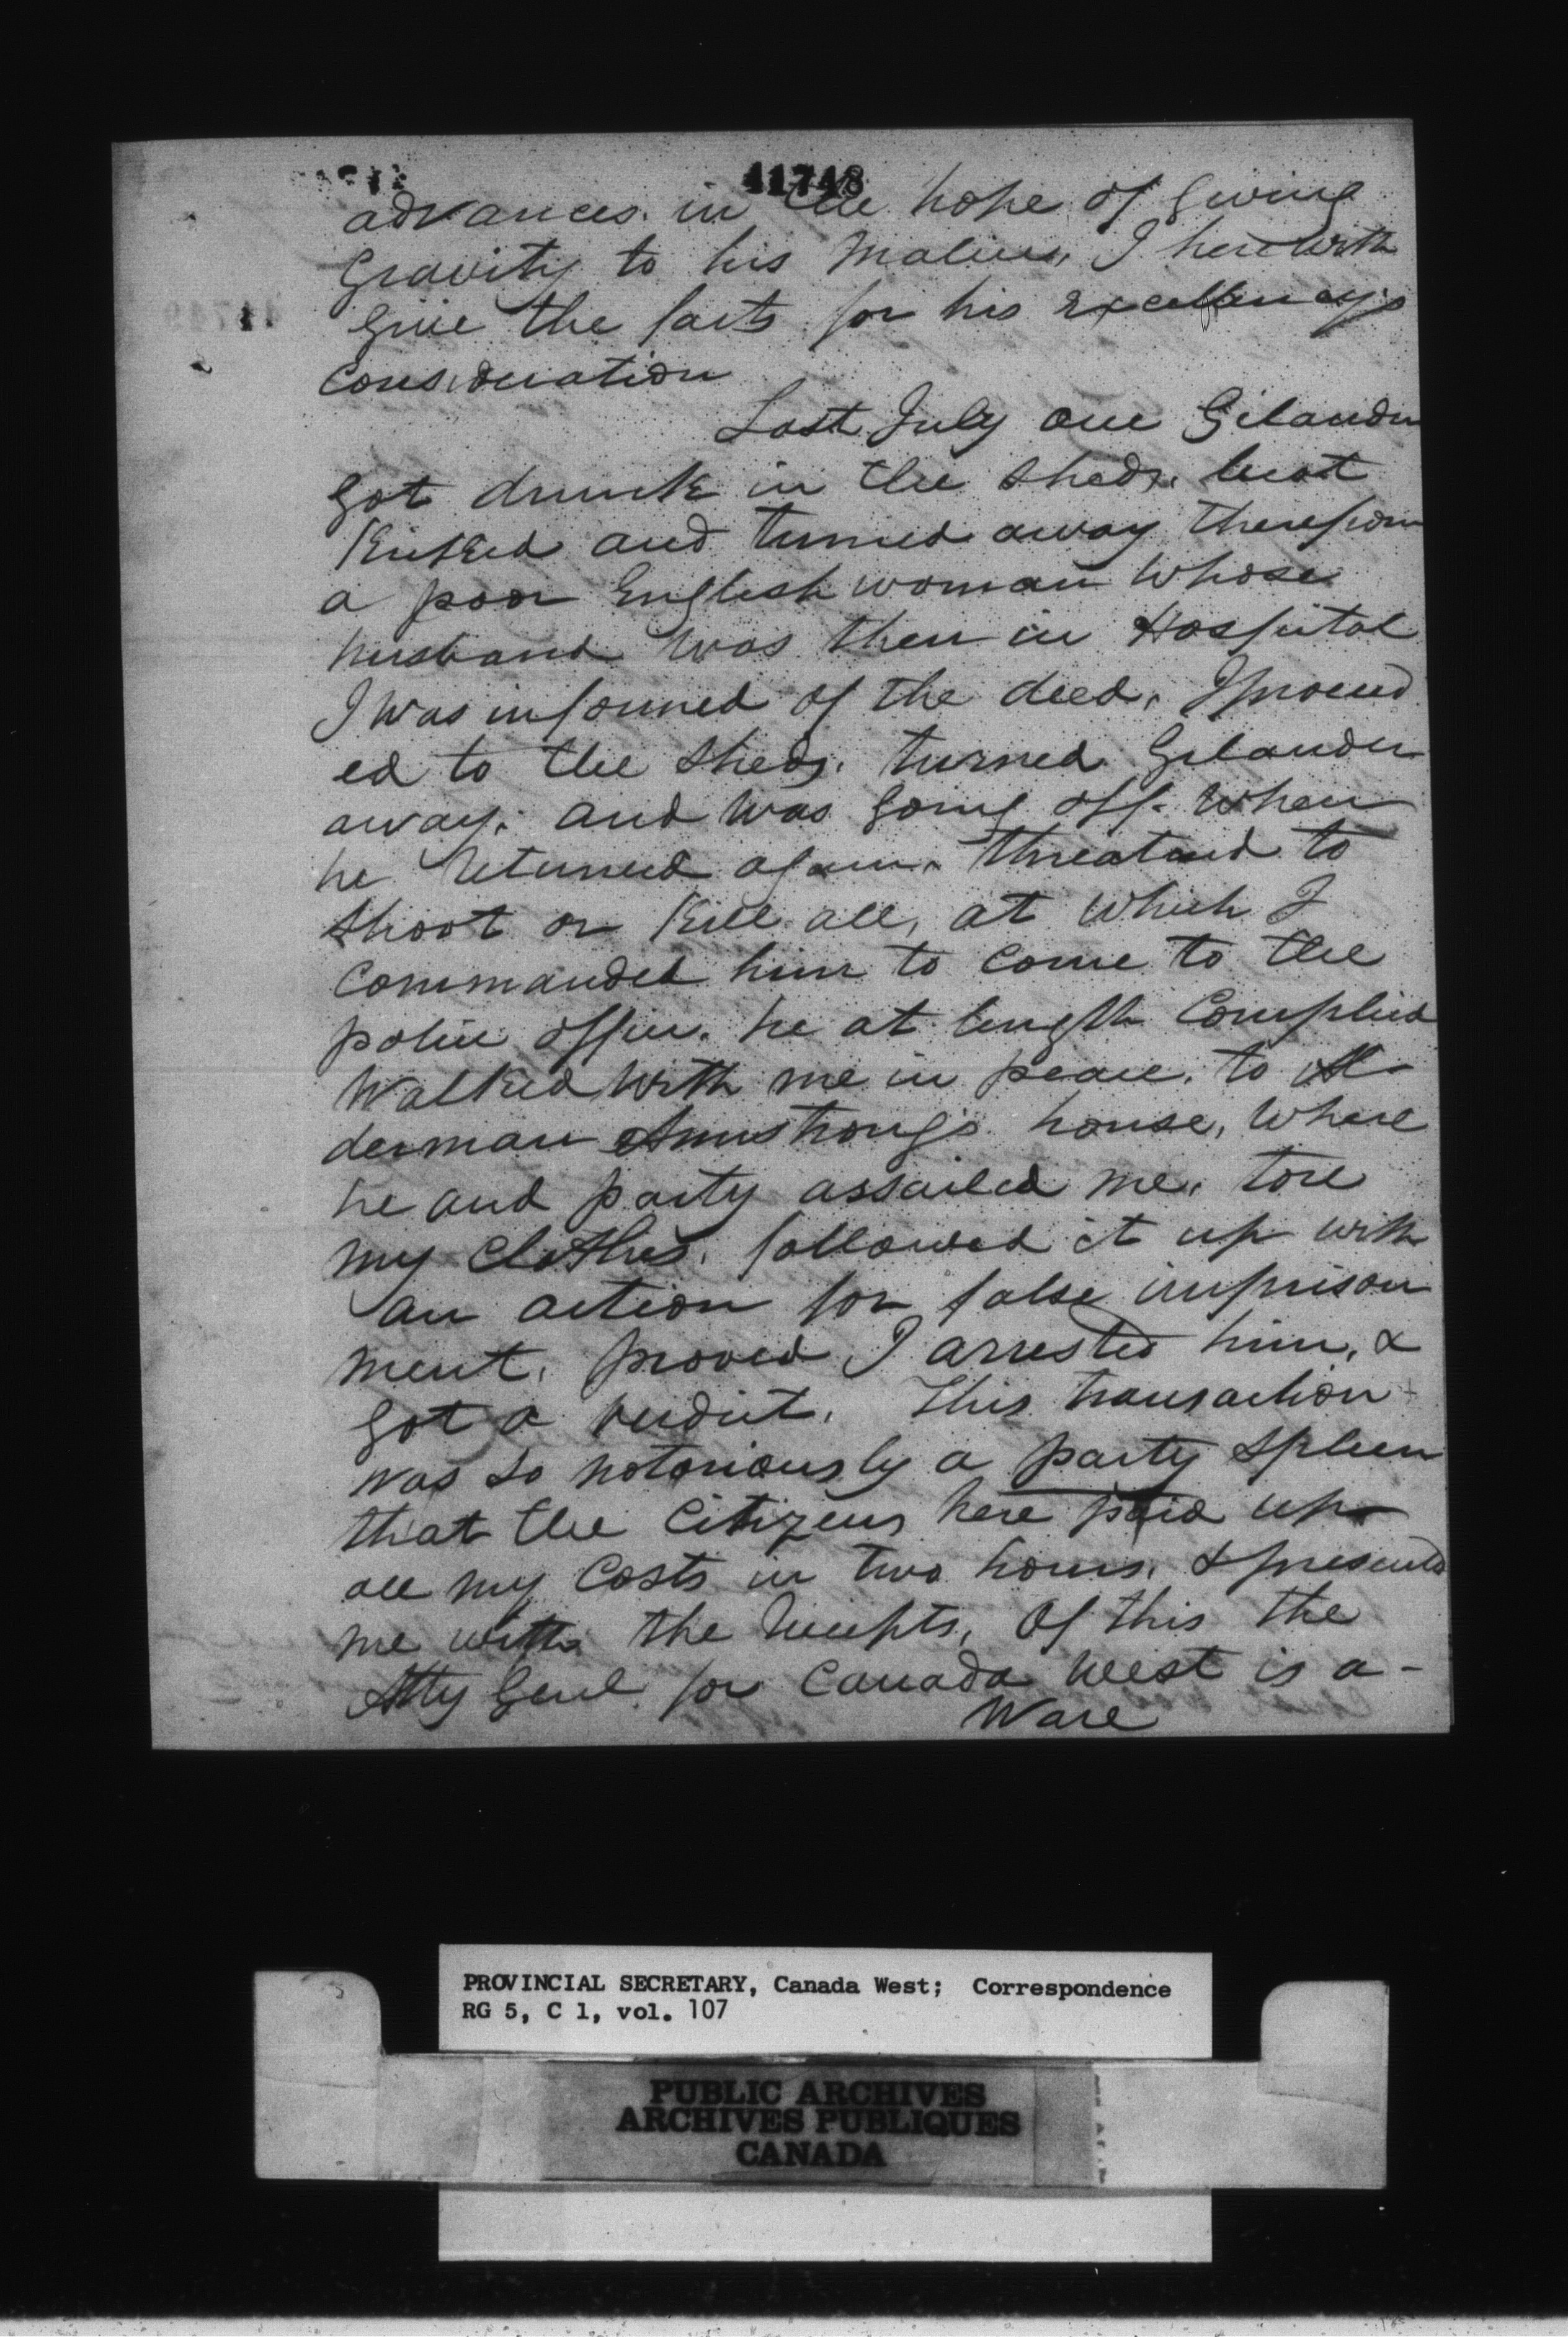 41748
advances in the hope of giving
gravity to his malice, I herewith
give the facts for his Excellency's
Consideration
Last July one Gilander
got drunk in the sheds, beat
Kicked and turned away therefrom
a poor English woman whose
husband was then in Hospital
I was informed of the deed, I proceed
ed to the sheds, turned Gilander
away, and was going off when
he returned again, threatened to
shoot or Kill all, at which I
Commanded him to come to the
police office. he at length Complied
Walked with me in peace, to Al-
derman Armstrong's house, where
he and party assailed me, tore
my Clothes, followed it up with
an action for false imprison
ment, proved I arrested him, &
got a verdict. This transaction
was so notoriously a party spleen
that the Citizens here paid up
all my Costs in two hours, & presented
me with the receipts, Of this the
Atty Genl. for Canada West is a-
Ware
PROVINCIAL SECRETARY, Canada West; Correspondence
RG 5, C 1, vol. 107
PUBLIC ARCHIVES
ARCHIVES PUBLIQUES
CANADA